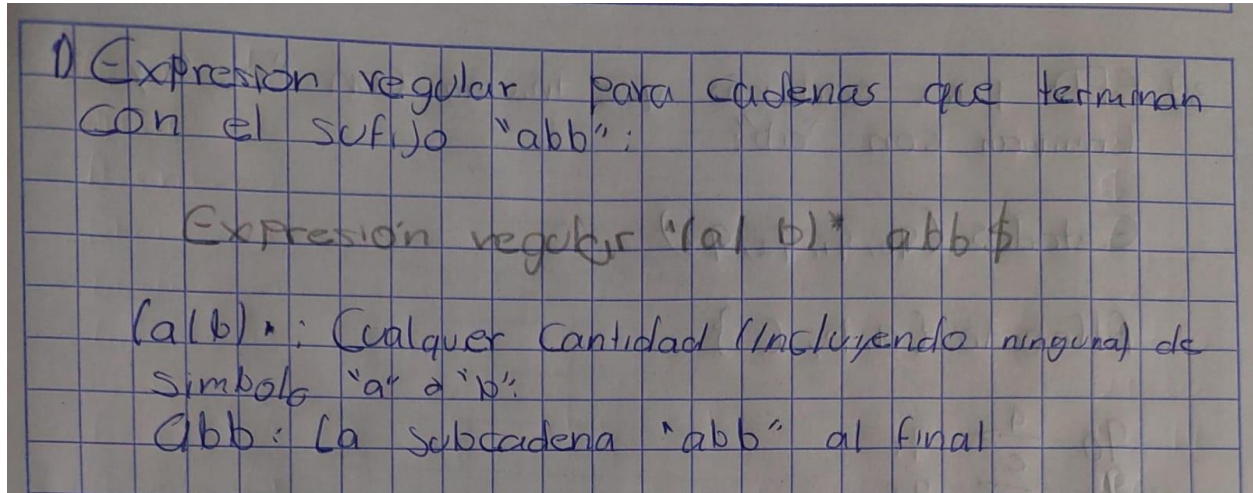 1) Expresion regular para cadenas que terminan
con el sufijo "abb":
Expresión regular "(a|b)* abb$
(a|b)*: Cualquer Cantidad (Incluyendo ninguna) de
simbolo "a" o "b":
abb: La subcadena "abb" al final